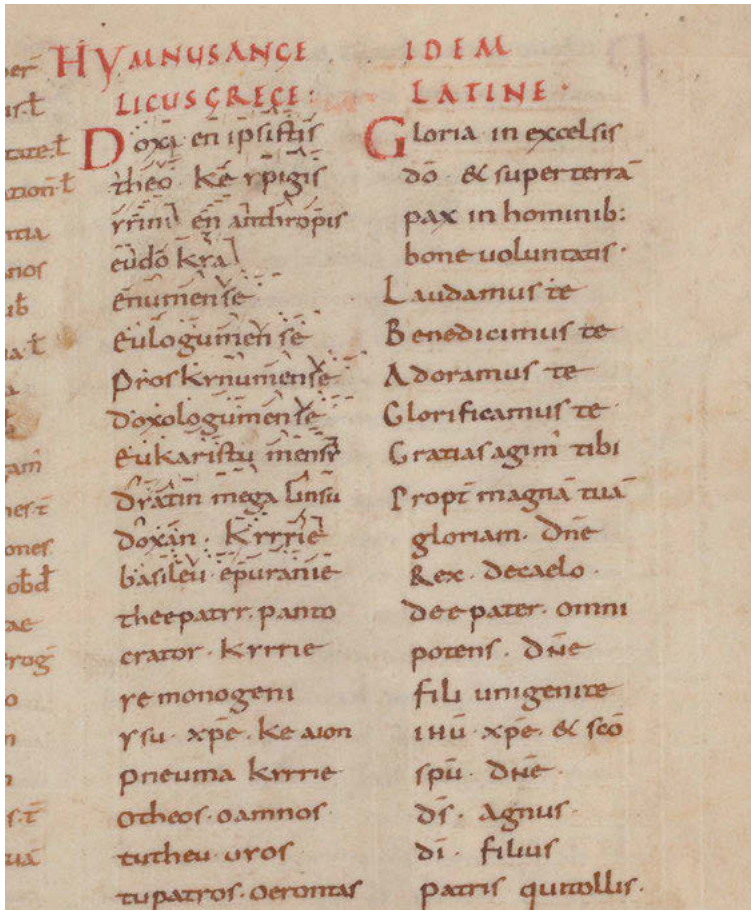 HYMNUS ANGE
LICUS GRECE:
Doxa en ipsistis
theo ke ypigis
yrini en anthropis
eudo kya
enumen se
eulogumen se
Proskynumen se
doxologumen se
eukaristu men sy
dyatin mega linsu
doxan. Kyrrie
basileu. epuranie
theepatyr. panto
crator. Kyrrie
ye monogeni
ysu. xp̄e. Ke aion
pneuma kyrrie
otheos. oamnos
tutheu. uros
tupatros. oerontas
IDEM
LATINE.
Gloria in excelsis
dō. & super terrā
pax in hominib:
bone uoluntatis.
Laudamus te
Benedicimus te
Adoramus te
Glorificamus te
Gratias agim̄ tibi
Propt̄ magnā tuā
gloriam. Dn̄e
Rex. Decaelo.
deepater. omni
potens. Dn̄e
fili unigenite
ihū xp̄e. & scō
spū. Dn̄e.
ds̄. Agnus.
dī. filius
patris quitollis.